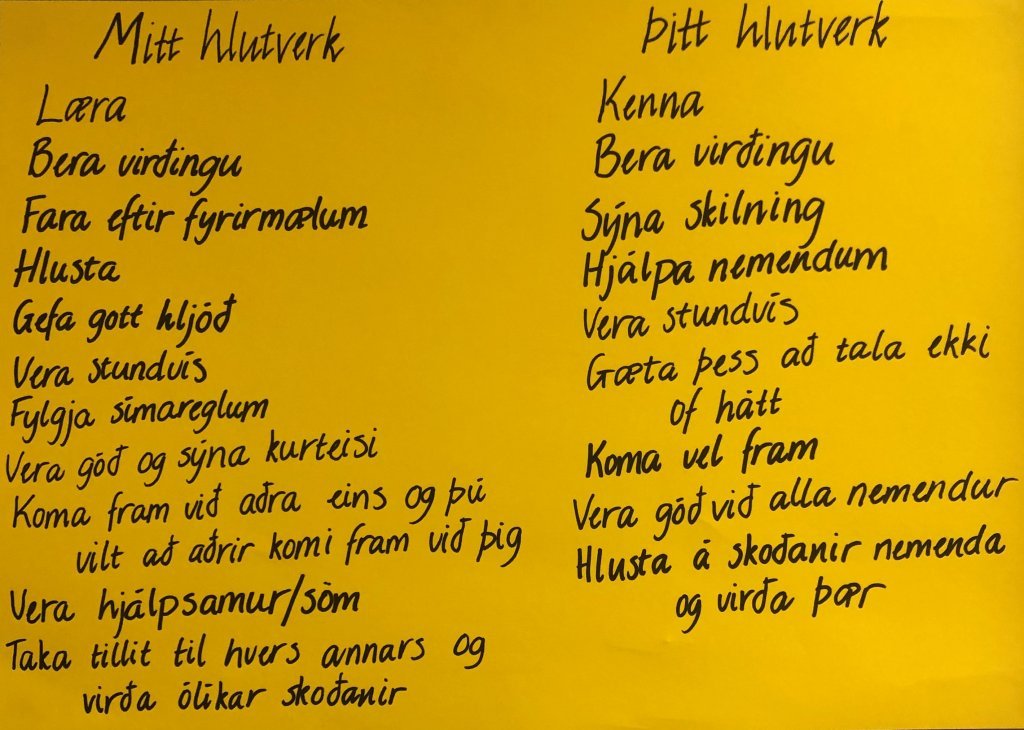 Mitt hlutverk
Læra
Bera virðingu
Fara eftir fyrirmælum
Hlusta
Gefa gott hljóð
Vera stundvís
Fylgja símareglum
Vera góð og sýna kurteisi
Koma fram við aðra eins og þú
vilt að aðrir komi fram við þig
Vera hjálpsamur/söm
Taka tillit til hvers annars og
virða ólíkar skoðanir
Þitt hlutverk
Kenna
Bera virðingu
Sýna skilning
Hjálpa nemendum
Vera stundvís
Gæta þess að tala ekki
of hátt
Koma vel fram
Vera góð við alla nemendur
Hlusta á skoðanir nemenda
og virða þær